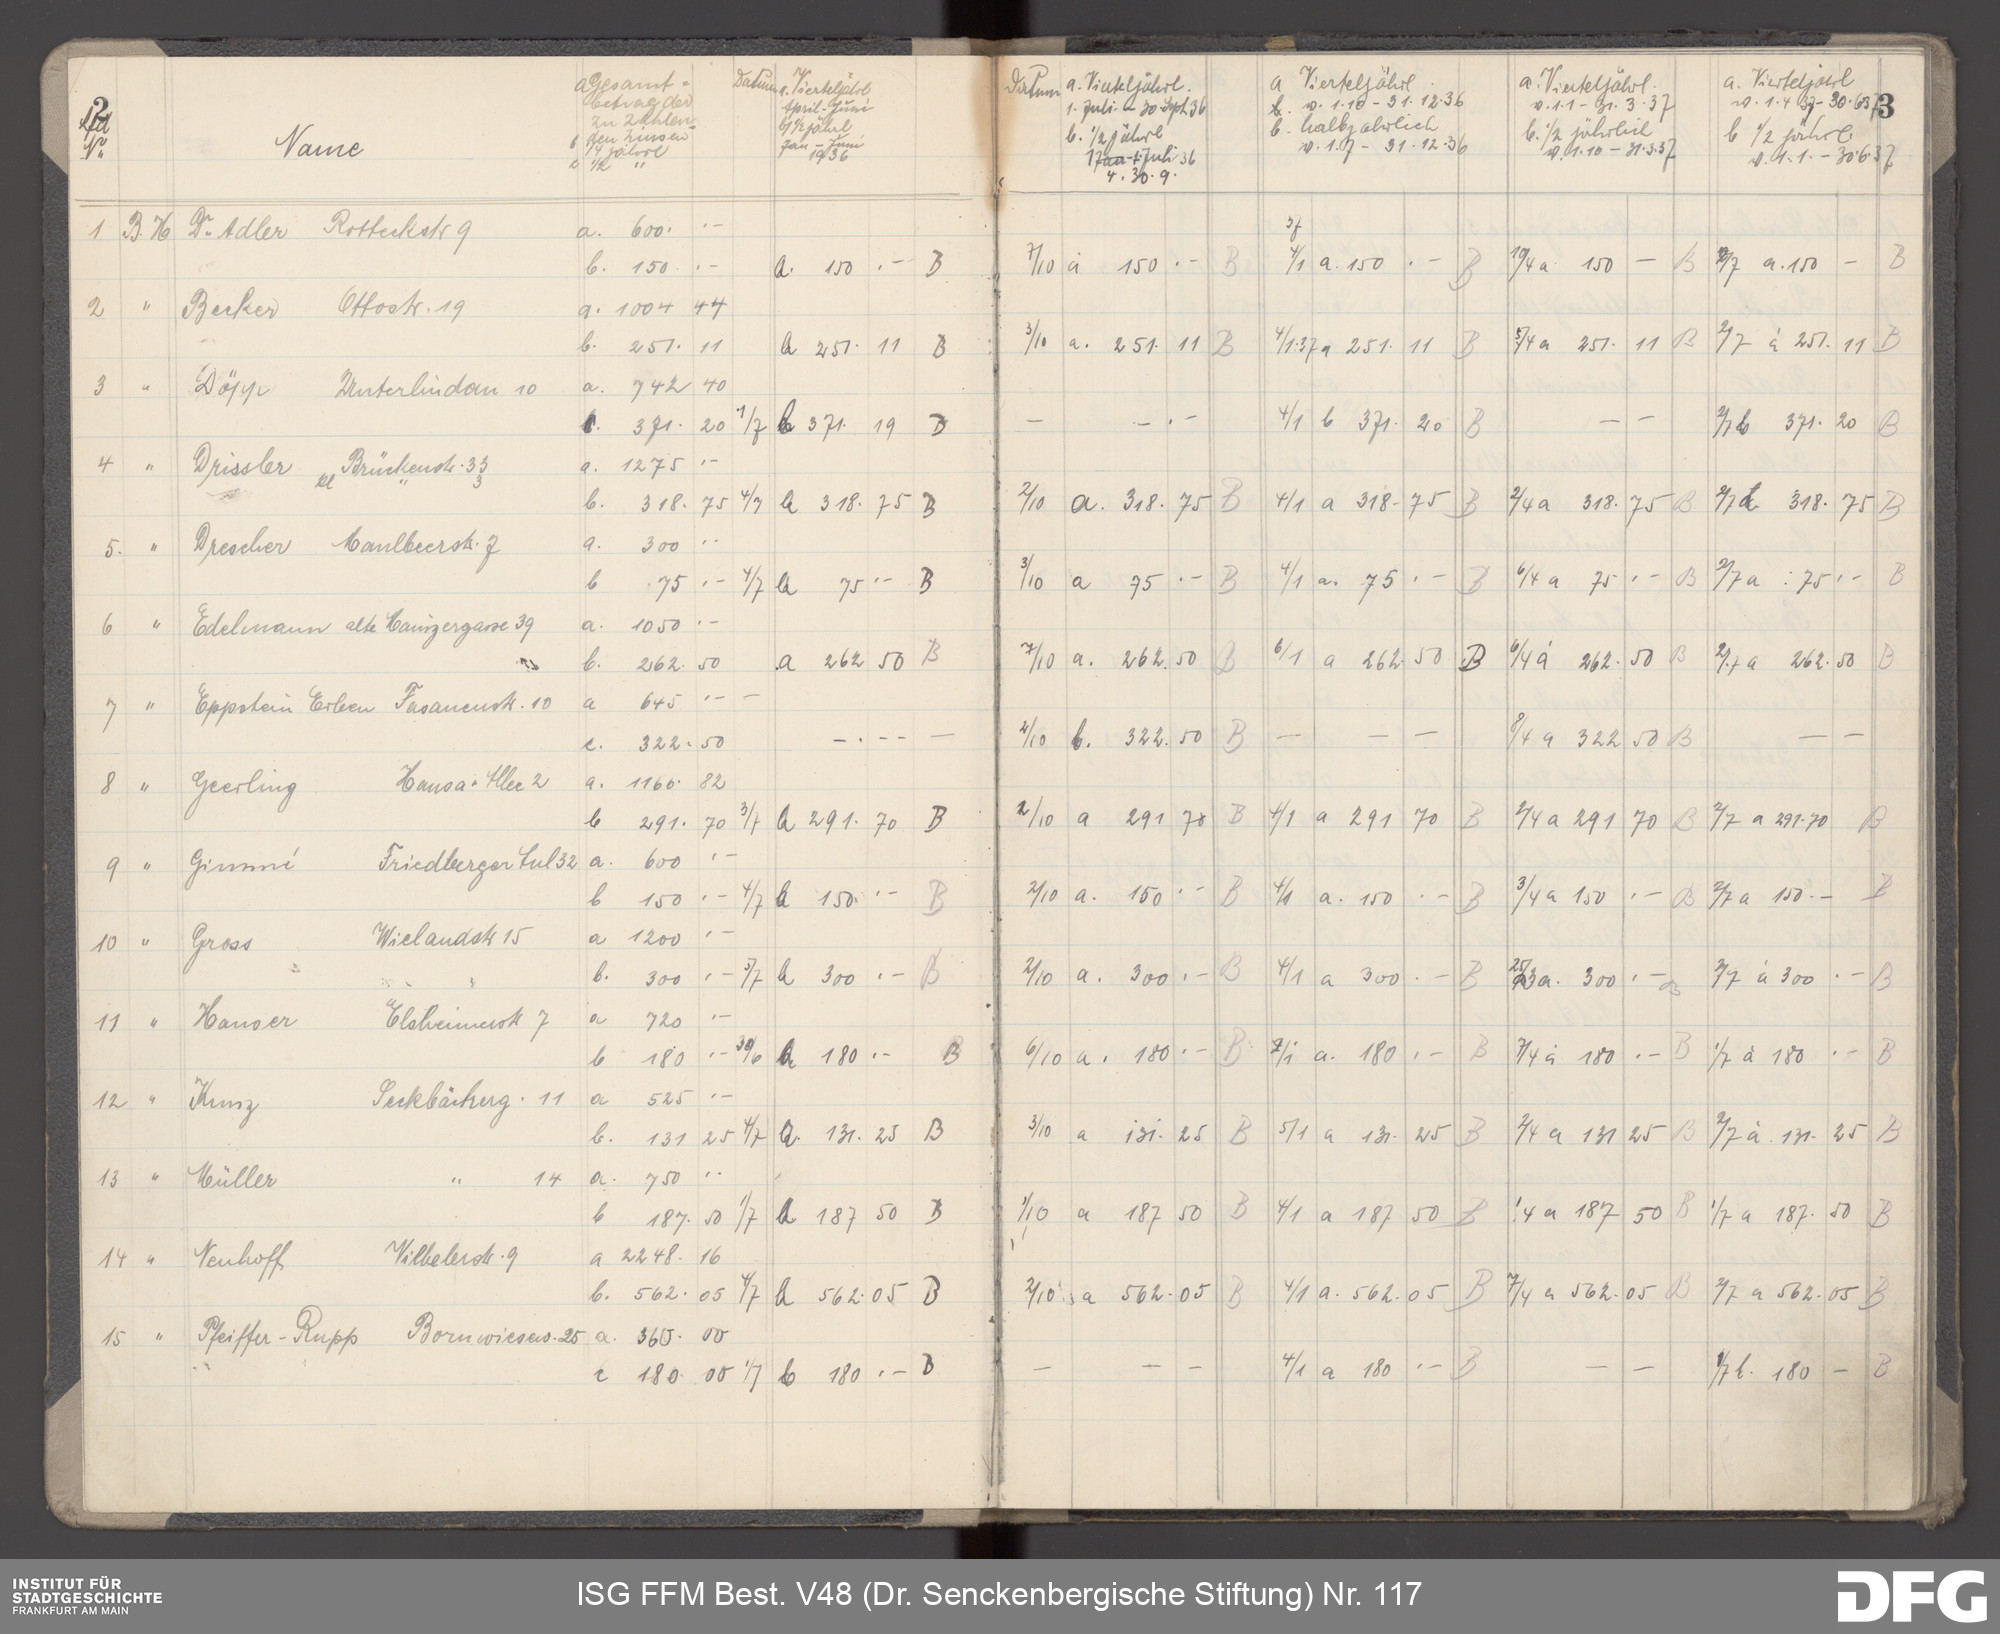 2
Lfd
Nr.
Name
a Gesamt-
betrag der
zu zahlen-
b den Zinsen
1/4 jährl
c 1/2 "
Datum
a. Vierteljährl
April-Juni
b 1/2 jährl
Jan - Juni
1936
Datum
a. Vierteljährl.
1. Juli - 30 Spt 36
b. 1/2 jährl
Juli 36
a Vierteljährl.
v. 1.10 - 31.12.36
b. halbjährlich
v. 1.7 - 31.12.36
a. Vierteljährl.
v. 1.1 - 31.3.37
b. 1/2 jährlich
v. 1.10 - 31.3.37
a. Vierteljährl
v. 1.4 37 - 30.6 37
b 1/2 jährl.
v. 1.1. - 30.6.37
3
1 B.H Dr. Adler Rotteckstr 9 a. 600. .-
b. 150 .- a. 150 .- B 7/10 a 150 .- B 4/1 37 a. 150 .- B 10/4 a 150 - B 2/7 a. 150 - B
2 " Becker Ottostr. 19 a. 1004 44
b. 251. 11 a 251. 11 B 3/10 a. 251. 11 B 4/1.37 a 251. 11 B 5/4 a 251. 11 B 2/7 a 251. 11 B
3 " Döpp Unterlindau 10 a. 742 40
c. 371. 20 1/7 b 371. 19 B - - . - 4/1 b 371. 20 B - - 2/7 b 371. 20 B
4 " Drissler kl Brückenstr. 33 a. 1275 .-
b. 318. 75 4/7 a 318. 75 B 2/10 a. 318. 75 B 4/1 a 318. 75 B 2/4 a 318. 75 B 2/7 a 318. 75 B
5. " Drescher Maulbeerstr. 7 a. 300 ..
b 75 .- 4/7 a 75 .- B 3/10 a 75 .- B 4/1 a. 75 .- B 6/4 a 75 .- B 2/7 a 75 .- B
6 " Edelmann alte Mainzergasse 39 a. 1050 .-
b. 262. 50 a 262 50 B 7/10 a. 262. 50 B 6/1 a 262. 50 B 6/4 a 262. 50 B 2/7 a 262. 50 B
7 " Eppstein Erben Fasanenstr. 10 a 645 .- -
c. 322. 50 - . - - - 2/10 b. 322. 50 B - - - 8/4 a 322 50 B - -
8 " Geerling Hansa-Allee 2 a. 1166. 82
b 291. 70 3/7 a 291. 70 B 2/10 a 291 70 B 4/1 a 291 70 B 2/4 a 291 70 B 2/7 a 291.70 B
9 " Gimmi Friedberger Anl 32 a. 600 .-
b 150 .- 4/7 a 150. .- B 2/10 a. 150 .- B 4/1 a. 150 .- B 3/4 a 150 .- B 2/7 a 150. - B
10 " Gross Wielandstr 15 a 1200 .-
b. 300 .- 3/7 a 300 .- B 2/10 a. 300 .- B 4/1 a 300 .- B 25/3 a. 300 .- B 2/7 a 300 .- B
11 " Hauser Elsheimerstr 7 a 720 .-
b 180 .- 30/6 a 180 .- B 6/10 a. 180 .- B 7/1 a. 180 .- B 7/4 a 180 .- B 1/7 a 180 .- B
12 " Kunz Seckbächerg. 11 a 525 .-
b. 131 25 4/7 a. 131. 25 B 3/10 a 131. 25 B 5/1 a 131. 25 B 2/4 a 131 25 B 2/7 a. 131. 25 B
13 " Müller " 14 a. 750 ..
b 187. 50 1/7 a 187 50 B 1/10 a 187 50 B 4/1 a 187 50 B 1/4 a 187 50 B 1/7 a 187. 50 B
14 " Neuhoff Vilbelerstr. 9 a 2248. 16
b. 562. 05 4/7 a 562. 05 B 2/10 a 562. 05 B 4/1 a. 562. 05 B 7/4 a 562. 05 B 2/7 a 562. 05 B
15 " Pfeiffer-Rupp Bornwiesenw. 25 a. 360. 00
c 180 00 1/7 b 180 .- B - - - 4/1 a 180 .- B - - 1/7 b. 180 - B
INSTITUT FÜR
STADTGESCHICHTE
FRANKFURT AM MAIN
ISG FFM Best. V48 (Dr. Senckenbergische Stiftung) Nr. 117
DFG